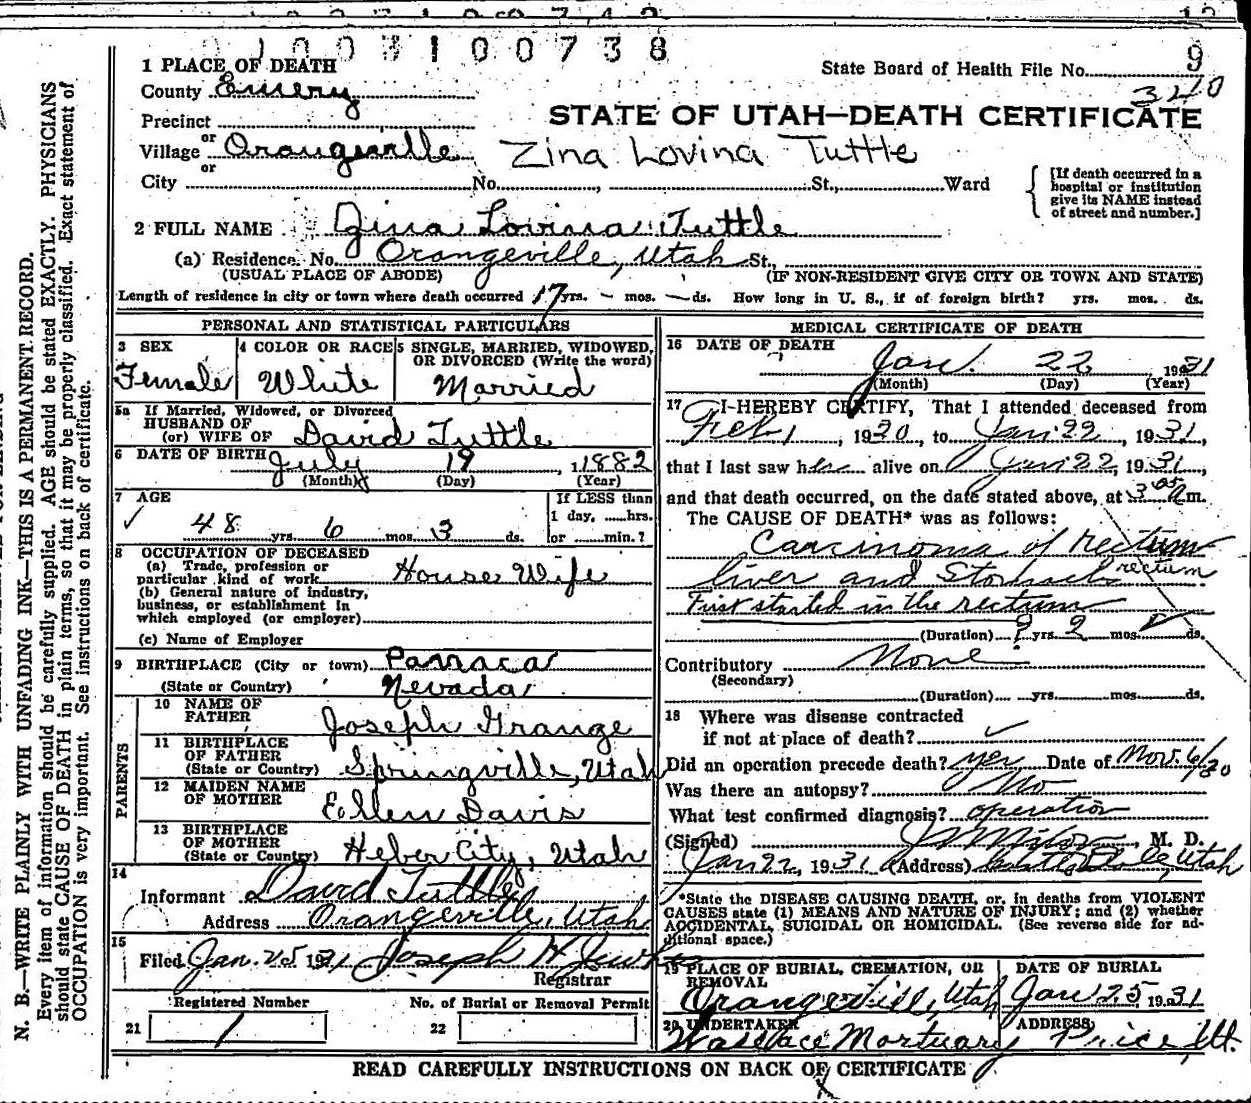 01003100738
1 PLACE OF DEATH
State Board of Health File No. 9
County Emery
340
Precinct
STATE OF UTAH—DEATH CERTIFICATE
or
Village Orangeville Zina Lovina Tuttle
or
City No. , St., Ward
[If death occurred in a hospital or institution give its NAME instead of street and number.]
2 FULL NAME Zina Lovina Tuttle
(a) Residence. No. Orangeville, Utah St.,
(USUAL PLACE OF ABODE) (IF NON-RESIDENT GIVE CITY OR TOWN AND STATE)
Length of residence in city or town where death occurred 17 yrs. – mos. – ds. How long in U. S., if of foreign birth? yrs. mos. ds.
PERSONAL AND STATISTICAL PARTICULARS
3 SEX 4 COLOR OR RACE 5 SINGLE, MARRIED, WIDOWED, OR DIVORCED (Write the word)
Female White Married
5a If Married, Widowed, or Divorced
HUSBAND OF
(or) WIFE OF David Tuttle
6 DATE OF BIRTH July 19, 1882
(Month) (Day) (Year)
7 AGE If LESS than
1 day, ......hrs.
48 yrs. 6 mos. 3 ds. or ......min.?
8 OCCUPATION OF DECEASED
(a) Trade, profession or
particular kind of work House Wife
(b) General nature of industry,
business, or establishment in
which employed (or employer)
(c) Name of Employer
9 BIRTHPLACE (City or town) Pannaca
(State or Country) Nevada
PARENTS
10 NAME OF
FATHER Joseph Grange
11 BIRTHPLACE
OF FATHER
(State or Country) Springville, Utah
12 MAIDEN NAME
OF MOTHER Eллen Davis
13 BIRTHPLACE
OF MOTHER
(State or Country) Heber City, Utah
14
Informant David Tuttle
Address Orangeville, Utah
15
Filed Jan. 25 1931 Joseph H Jewkes
Registrar
Registered Number No. of Burial or Removal Permit
21 1 22
MEDICAL CERTIFICATE OF DEATH
16 DATE OF DEATH
Jan. 22, 1931
(Month) (Day) (Year)
17 I HEREBY CERTIFY, That I attended deceased from
Feb 1, 1930, to Jan 22, 1931,
that I last saw her alive on Jan 22, 1931,
and that death occurred, on the date stated above, at 3 05 a m.
The CAUSE OF DEATH* was as follows:
Carcinoma of rectum
liver and Stomach rectum
First started in the rectum
(Duration) ? yrs. 2 mos. ds.
Contributory None
(Secondary)
(Duration) yrs. mos. ds.
18 Where was disease contracted
if not at place of death?
Did an operation precede death? yes Date of Nov. 6/30
Was there an autopsy? No
What test confirmed diagnosis? operation
(Signed) M. D.
Jan 22, 1931 (Address) Castle Dale, Utah
*State the DISEASE CAUSING DEATH, or, in deaths from VIOLENT
CAUSES state (1) MEANS AND NATURE OF INJURY; and (2) whether
ACCIDENTAL, SUICIDAL OR HOMICIDAL. (See reverse side for additional space.)
19 PLACE OF BURIAL, CREMATION, OR REMOVAL DATE OF BURIAL
Orangeville, Utah Jan 25, 1931
20 UNDERTAKER ADDRESS
Wallace Mortuary Price, Ut.
READ CAREFULLY INSTRUCTIONS ON BACK OF CERTIFICATE
N. B.—WRITE PLAINLY WITH UNFADING INK—THIS IS A PERMANENT RECORD.
Every item of information should be carefully supplied. AGE should be stated EXACTLY. PHYSICIANS
should state CAUSE OF DEATH in plain terms, so that it may be properly classified. Exact statement of
OCCUPATION is very important. See instructions on back of certificate.